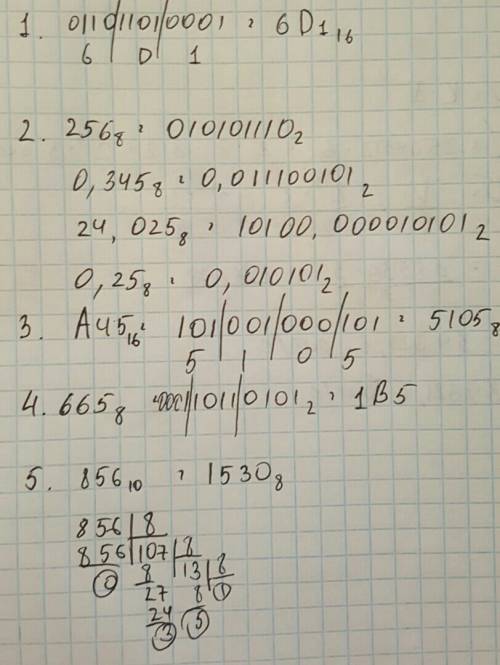 1. 0110|1101|0001 = 6D1₁₆
6 D 1
2. 256₈ = 010101110₂
0,345₈ = 0,011100101₂
24,025₈ = 10100,000010101₂
0,25₈ = 0,010101₂
3. A45₁₆ = 101|001|000|101 = 5105₈
5 1 0 5
4. 665₈ = 0001|1011|0101₂ = 1B5
5. 856₁₀ = 1530₈
856 | 8
856 | 107 | 8
0 8 13 | 8
27 8 1
24 5
3